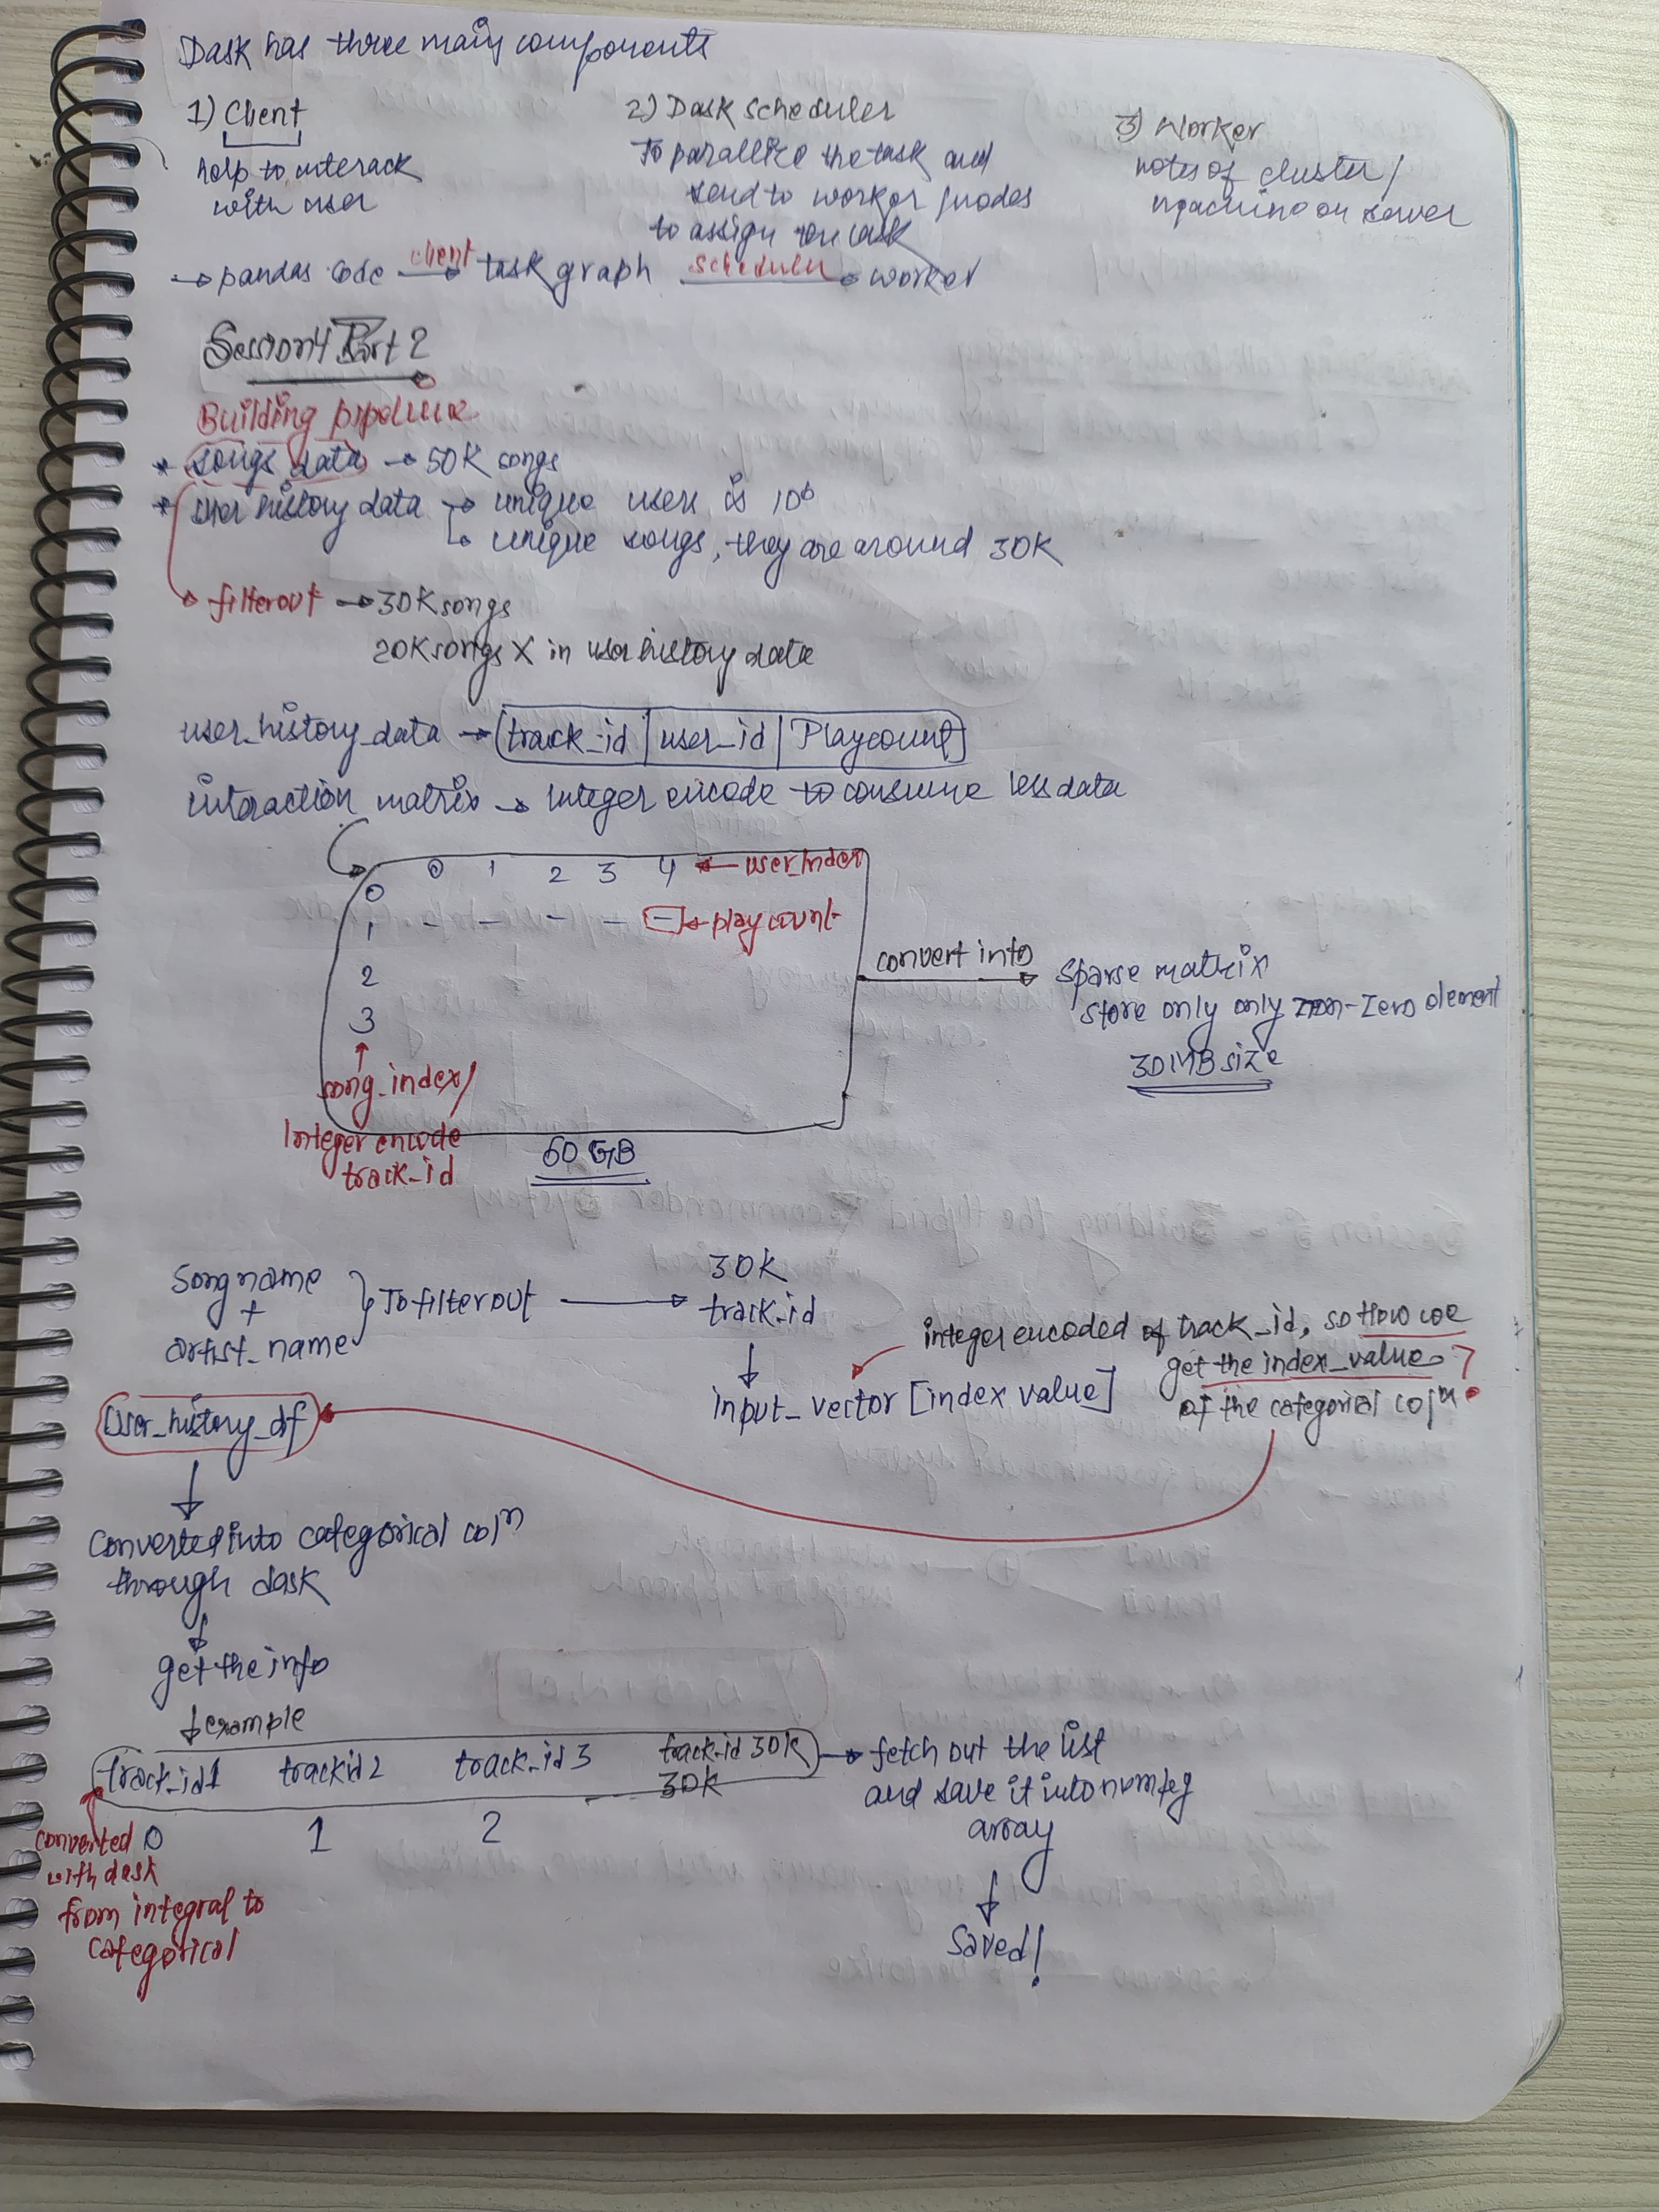 Dask has three main components
1) Client
help to interack
with user
2) Dask scheduler
To parallize the task and
send to worker / nodes
to assign the task
3) Worker
notes of cluster /
machine or server
→ pandas code client→ task graph scheduler→ worker
Session 4 Part 2
Building pipeline
* songs data → 50K songs
* User history data → unique users is 10⁶
unique songs, they are around 30K
→ filterout → 30K songs
20K songs X in user history data
user_history_data → track_id | user_id | Playcount
interaction matrix → Integer encode to consume less data
0 1 2 3 4 ← user_index
0
1 - - - - - ← play count
2
3
song_index/
Integer encode
track_id
60 GB
convert into → Sparse matrix
store only only non-zero element
30MB size
Song name
+
artist_name
} To filter out → 30K
track_id
↓
input_vector [index value]
integer encoded of track_id, so How we
get the index_value ?
of the categorial colⁿ
User_history_df
↓
Converted into categorical colⁿ
through dask
↓
get the info
↓ example
track_id1 trackid2 track_id3 track_id 30K
30K
0 1 2
converted
with dask
from integral to
categorical
→ fetch out the list
and save it into numpy
array
↓
Saved!